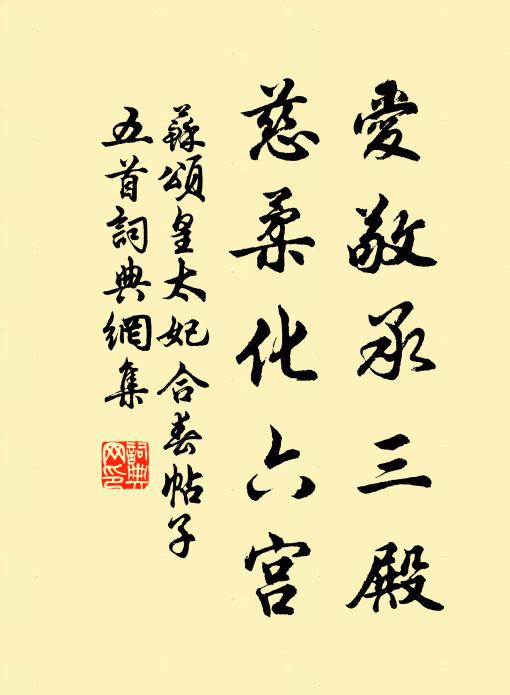 愛敬承三殿
慈柔化六宮
蘇頌皇太妃合春帖子
五首詞典網集
詞典網印